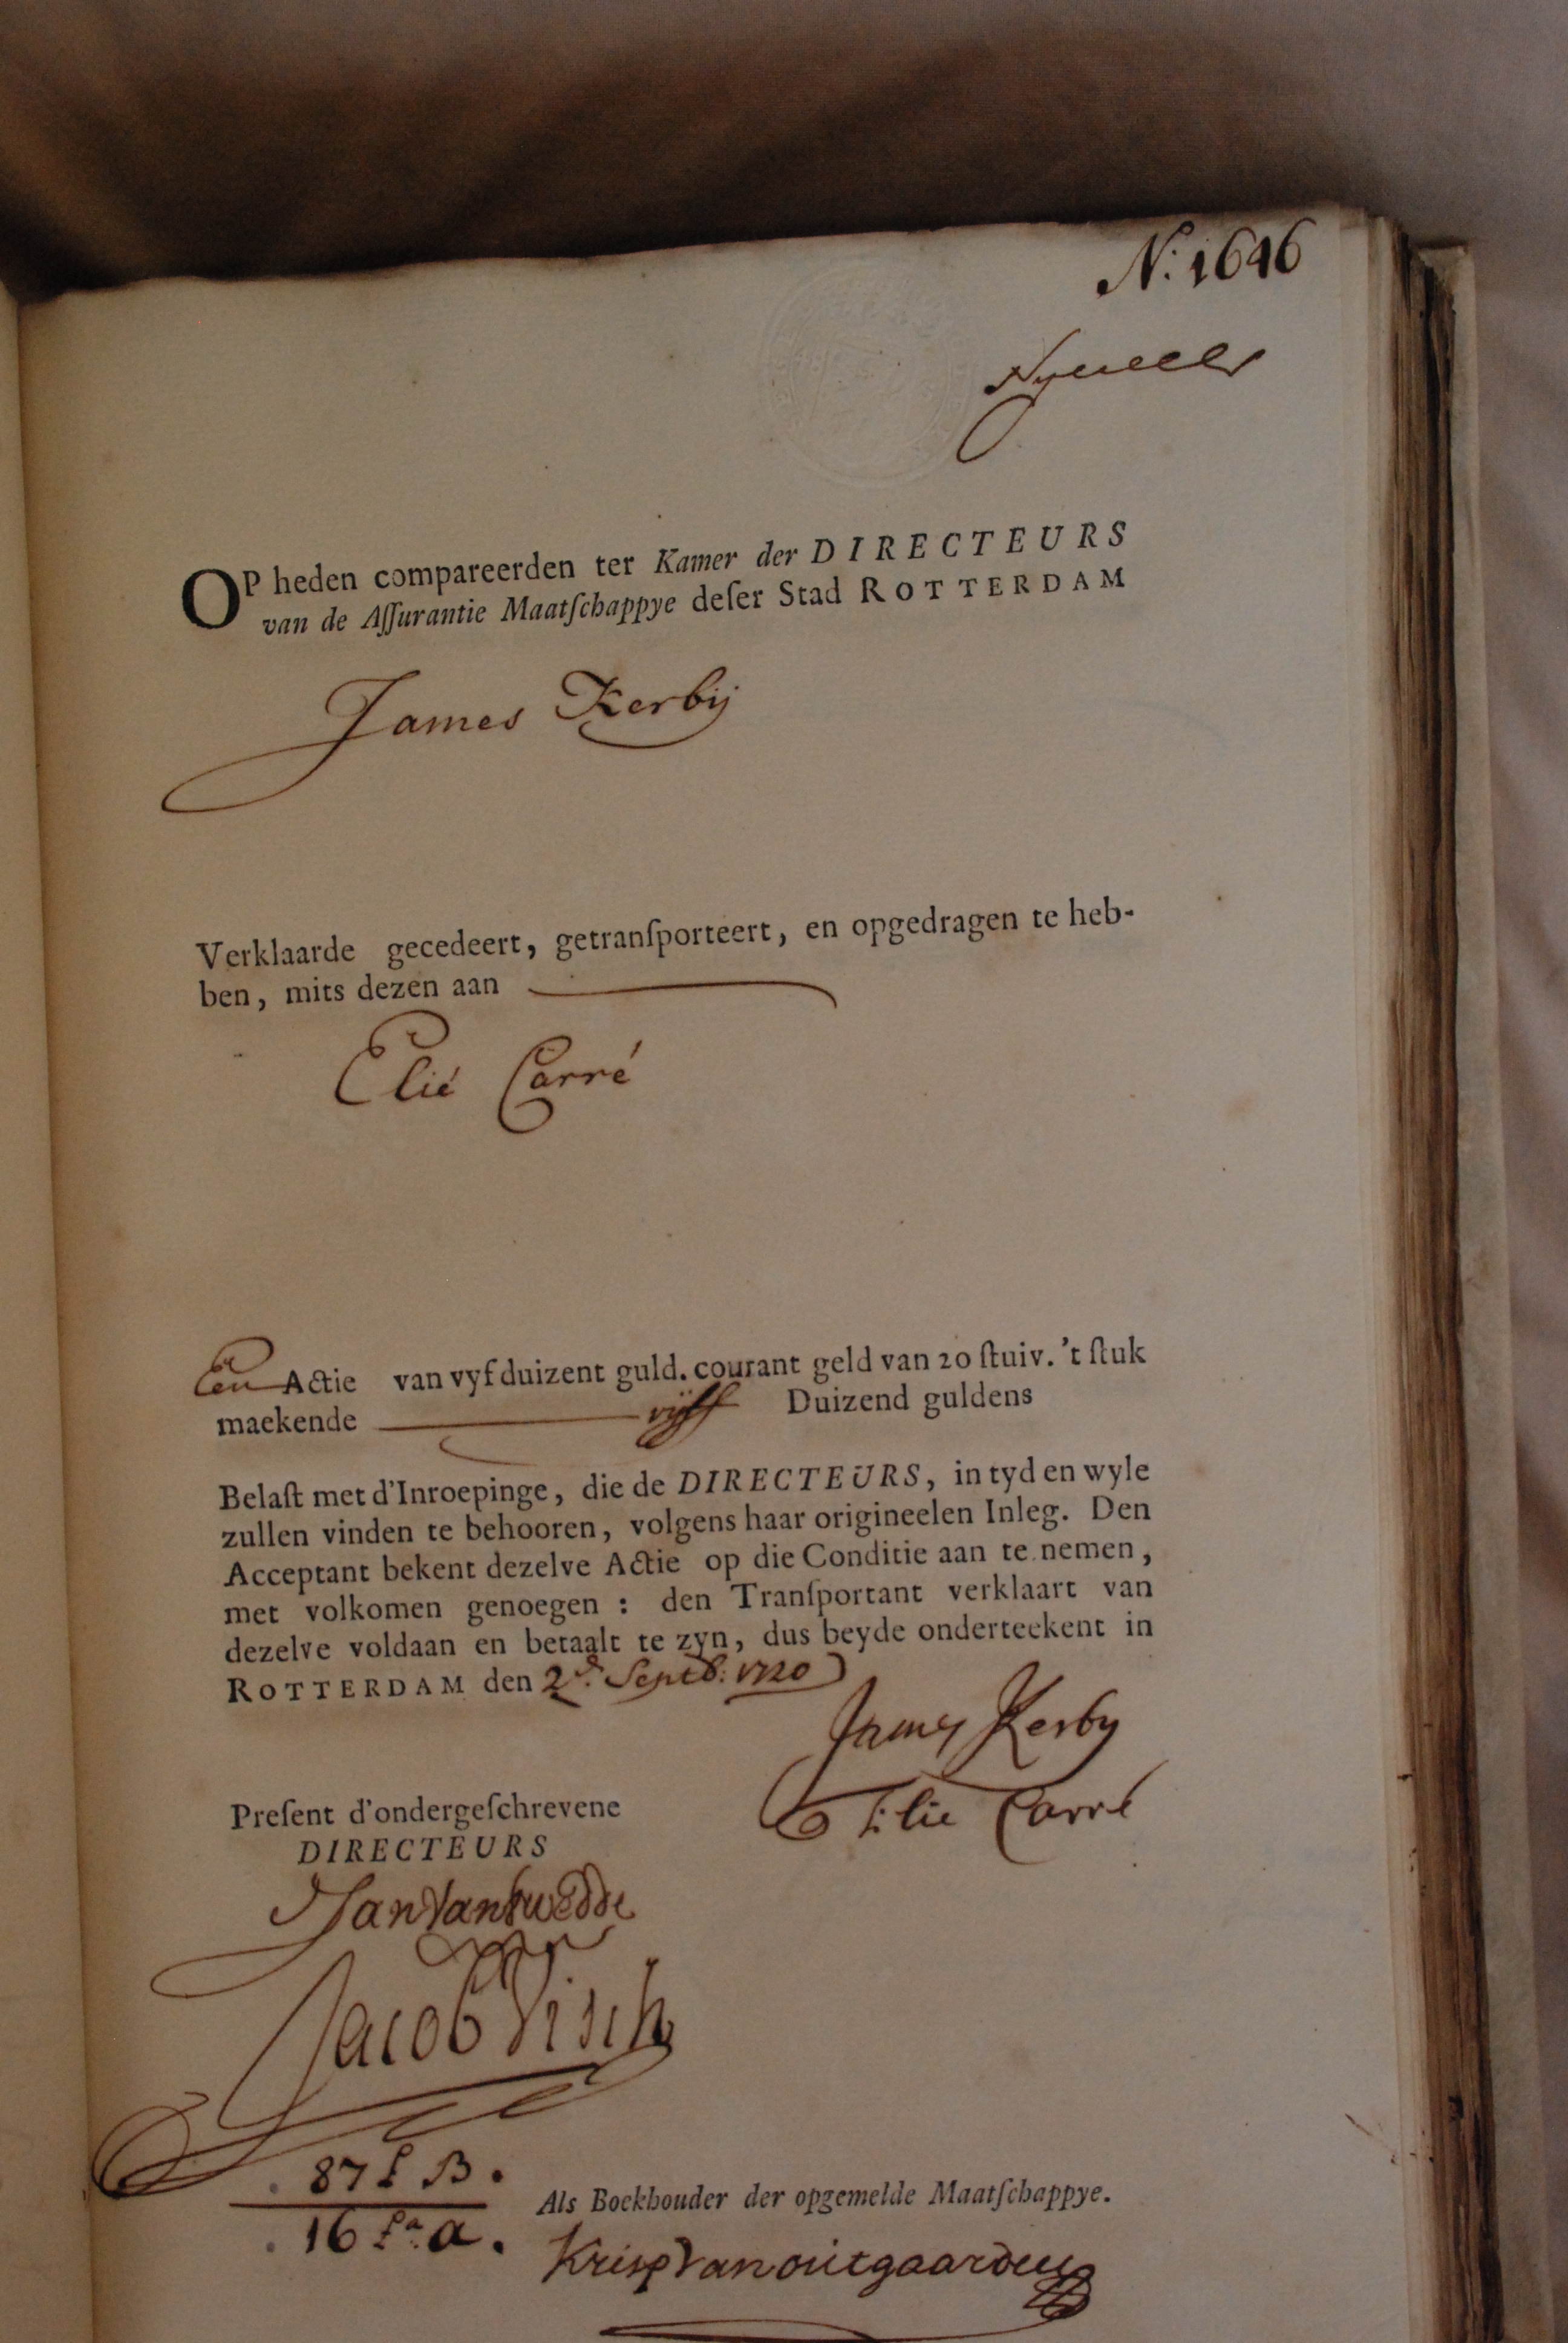 N: 1646
OP heden compareerden ter Kamer der DIRECTEURS
van de Aſſurantie Maatſchappye deſer Stad ROTTERDAM
James Kerbij
Verklaarde gecedeert, getranſporteert, en opgedragen te heb-
ben, mits dezen aan
Elié Carré
Een Actie van vyf duizent guld. courant geld van 20 ſtuiv. 't ſtuk
maekende vijff Duizend guldens
Belaſt met d'Inroepinge, die de DIRECTEURS, in tyd en wyle
zullen vinden te behooren, volgens haar origineelen Inleg. Den
Acceptant bekent dezelve Actie op die Conditie aan te nemen,
met volkomen genoegen : den Tranſportant verklaart van
dezelve voldaan en betaalt te zyn, dus beyde onderteekent in
ROTTERDAM den 2.d Septb: 1720
James Kerby
Elie Carré
Preſent d'ondergeſchrevene
DIRECTEURS
Jan Van
Jacob Visch
87 f B.
16 fa. a.
Als Boekhouder der opgemelde Maatſchappye.
Krisp Van outgaarden